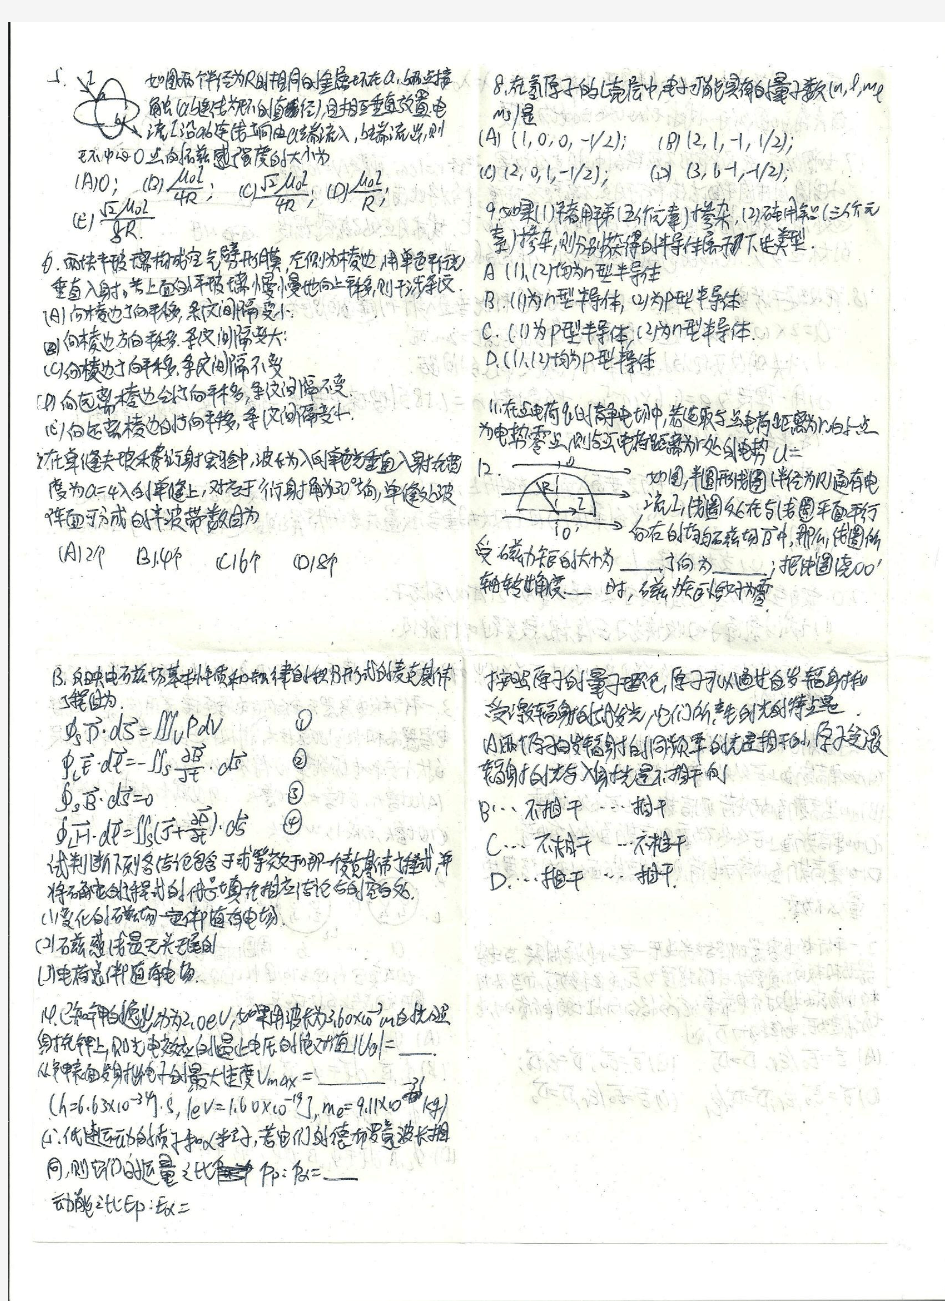 5. 如图两个半径为R的相同的金属环在a、b两点接
触(ab连线为环的直径),且相互垂直放置,电
流I沿ab连线方向由a端流入,b端流出,则
环中心O点的磁感强度的大小为
(A) 0; (B) μ₀I/4R; (C) √2μ₀I/4R; (D) μ₀I/R;
(E) √2μ₀I/8R.
6. 两块平玻璃构成空气劈形膜,左侧为棱边,用单色平行光
垂直入射,若上面的平玻璃慢慢地向上平移,则干涉条纹
(A)向棱边方向平移,条纹间隔变小
(B)向棱边方向平移,条纹间隔变大
(C)向棱边方向平移,条纹间隔不变
(D)向远离棱边的方向平移,条纹间隔不变
(E)向远离棱边的方向平移,条纹间隔变小
7. 在单缝夫琅禾费衍射实验中,波长为λ的单色光垂直入射在宽
度为a=4λ的单缝上,对应于衍射角为30°方向,单缝处波
阵面可分成的半波带数目为
(A) 2个 (B) 4个 (C) 6个 (D) 8个
8. 在氢原子的L壳层中,电子可能具有的量子数(n,l,ml
ms)是
(A) (1, 0, 0, -1/2); (B) (2, 1, -1, 1/2);
(C) (2, 0, 1, -1/2); (D) (3, 1, -1, -1/2).
9. 如果(1)锗用锑(五价元素)掺杂,(2)硅用铝(三价元
素)掺杂,则分别获得的半导体属于下述类型.
A (1),(2)均为n型半导体
B. (1)为n型半导体,(2)为P型半导体
C. (1)为P型半导体,(2)为n型半导体.
D. (1),(2)均为P型半导体
11. 在点电荷q的静电场中,若选取与点电荷距离为r₀的一点
为电势零点,则与点电荷距离为r处的电势U=
12. 如图,半圆形线圈(半径为R)通有电
流I,线圈处在与线圈平面平行
向右的均匀磁场B中,那么,线圈所
受磁力矩的大小为____,方向为____;把线圈绕OO'
轴转过角度__时,磁力矩恰为零.
13. 反映电磁场基本性质和规律的积分形式的麦克斯韦
方程组为.
∮s D·dS=∭v ρdV ①
∮L E·dl=-∬s ∂B/∂t·dS ②
∮s B·dS=0 ③
∮L H·dl=∬s(J+∂D/∂t)·dS ④
试判断下列各结论包含于或等效于哪一个麦克斯韦方程式,并
将确定的方程式的代号填在相应结论后的空白处.
(1)变化的磁场一定伴随有电场.
(2)磁感线是无头无尾的
(3)电荷总伴随有电场.
14. 已知钾的逸出功为2.0eV,如果用波长为3.60×10⁻⁷m的光照
射在钾上,则光电效应的遏止电压的绝对值|Ua|=____.
从钾表面发射出电子的最大速度Vmax=______
(h=6.63×10⁻³⁴J·s, 1eV=1.60×10⁻¹⁹J, m₀=9.11×10⁻³¹kg)
15. 低速运动的质子和α粒子,若它们的德布罗意波长相
同,则它们的动量之比Pp:Pα=__
动能之比Ep:Eα=
按照原子的量子理论,原子可以通过自发辐射和
受激辐射的方式发光,它们所产生的光的特点是
(A)两个原子自发辐射的同频率的光是相干的,原子受激
辐射的光与入射光是不相干的
B… 不相干 … 相干
C… 不相干 … 不相干
D. … 相干 … 相干.